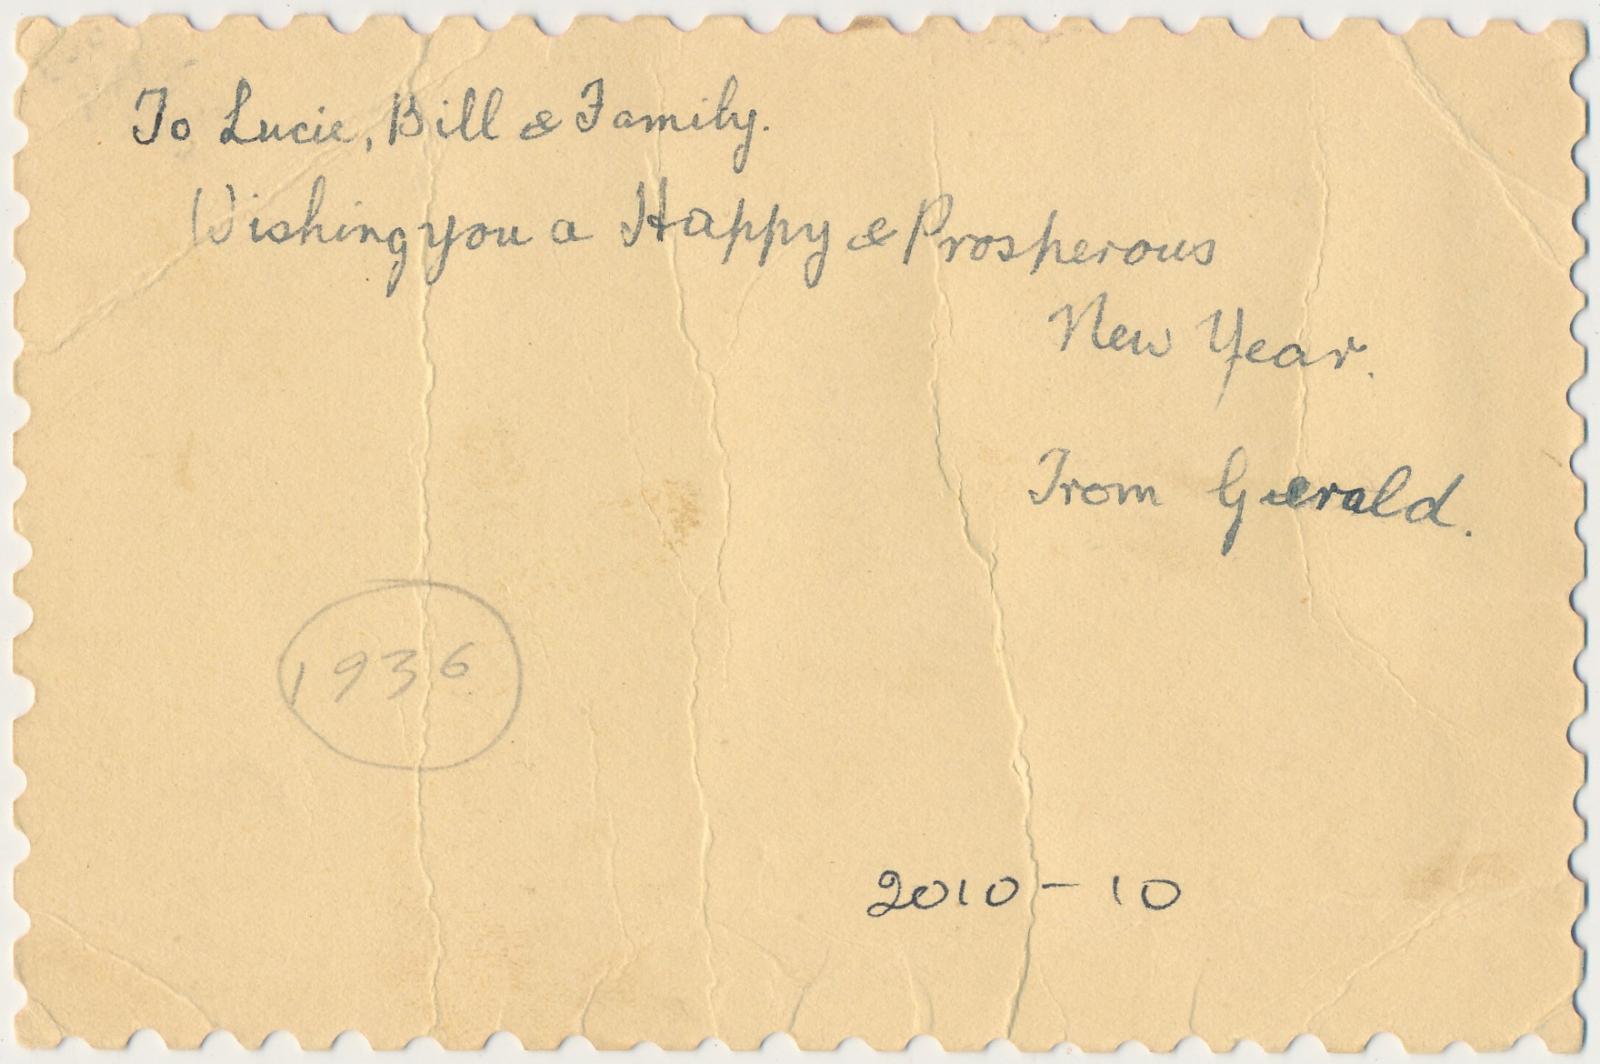 To Lucie, Bill & Family.
Wishing you a Happy & Prosperous
New Year.
From Gerald.
1936
2010-10